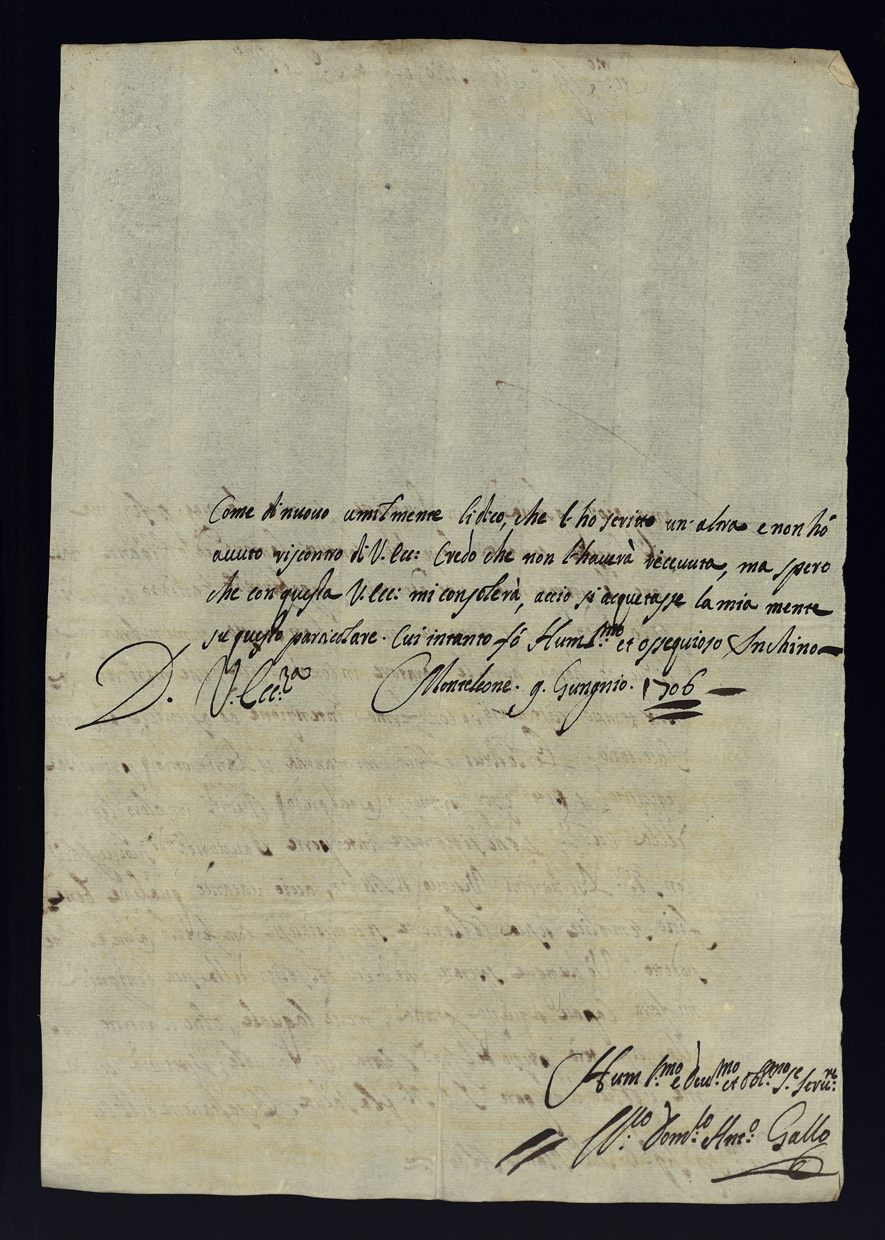 Come di nuovo umilmente li dico, che l'ho scritto un'altra e non hò
avuto riscontro di V. Ecc: Credo che non l'haverà ricevuta, ma spero
che con questa V. Ecc: mi consolerà, acciò si acquetasse la mia mente
su questo particolare. Cui intanto fò Hum.mo et ossequioso Inchino
D. V. Ecc.za Monteleone. 9. Giungnio. 1706
Hum.mo e Dev.mo et Obl.mo Serv.re
Dom.co Ant.o Gallo